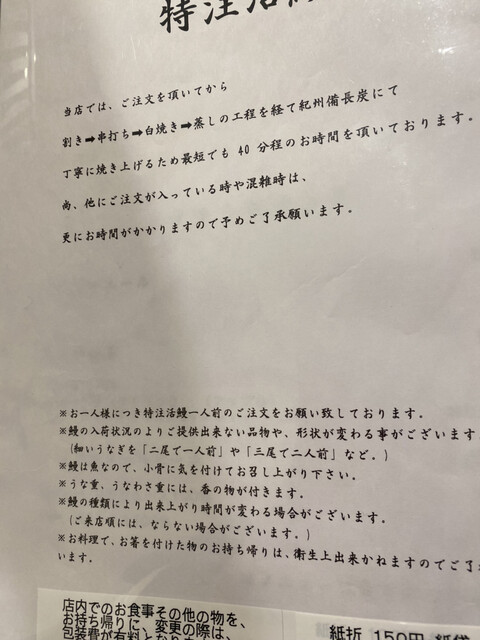 特注活
当店では、ご注文を頂いてから
割き➡串打ち➡白焼き➡蒸しの工程を経て紀州備長炭にて
丁寧に焼き上げるため最短でも 40 分程のお時間を頂いております。
尚、他にご注文が入っている時や混雑時は、
更にお時間がかかりますので予めご了承願います。
※お一人様につき特注活鰻一人前のご注文をお願い致しております。
※鰻の入荷状況のよりご提供出来ない品物や、形状が変わる事がございます
(細いうなぎを「二尾で一人前」や「三尾で二人前」など。)
※鰻は魚なので、小骨に気を付けてお召し上がり下さい。
※うな重、うなわさ重には、香の物が付きます。
※鰻の種類により出来上がり時間が変わる場合がございます。
(ご来店順には、ならない場合がございます。)
※お料理で、お箸を付けた物のお持ち帰りは、衛生上出来かねますのでご了
います。
店内でのお食事その他の物を、
お持ち帰りに、変更の際は、
包装費が有料と
紙折 150円 紙袋